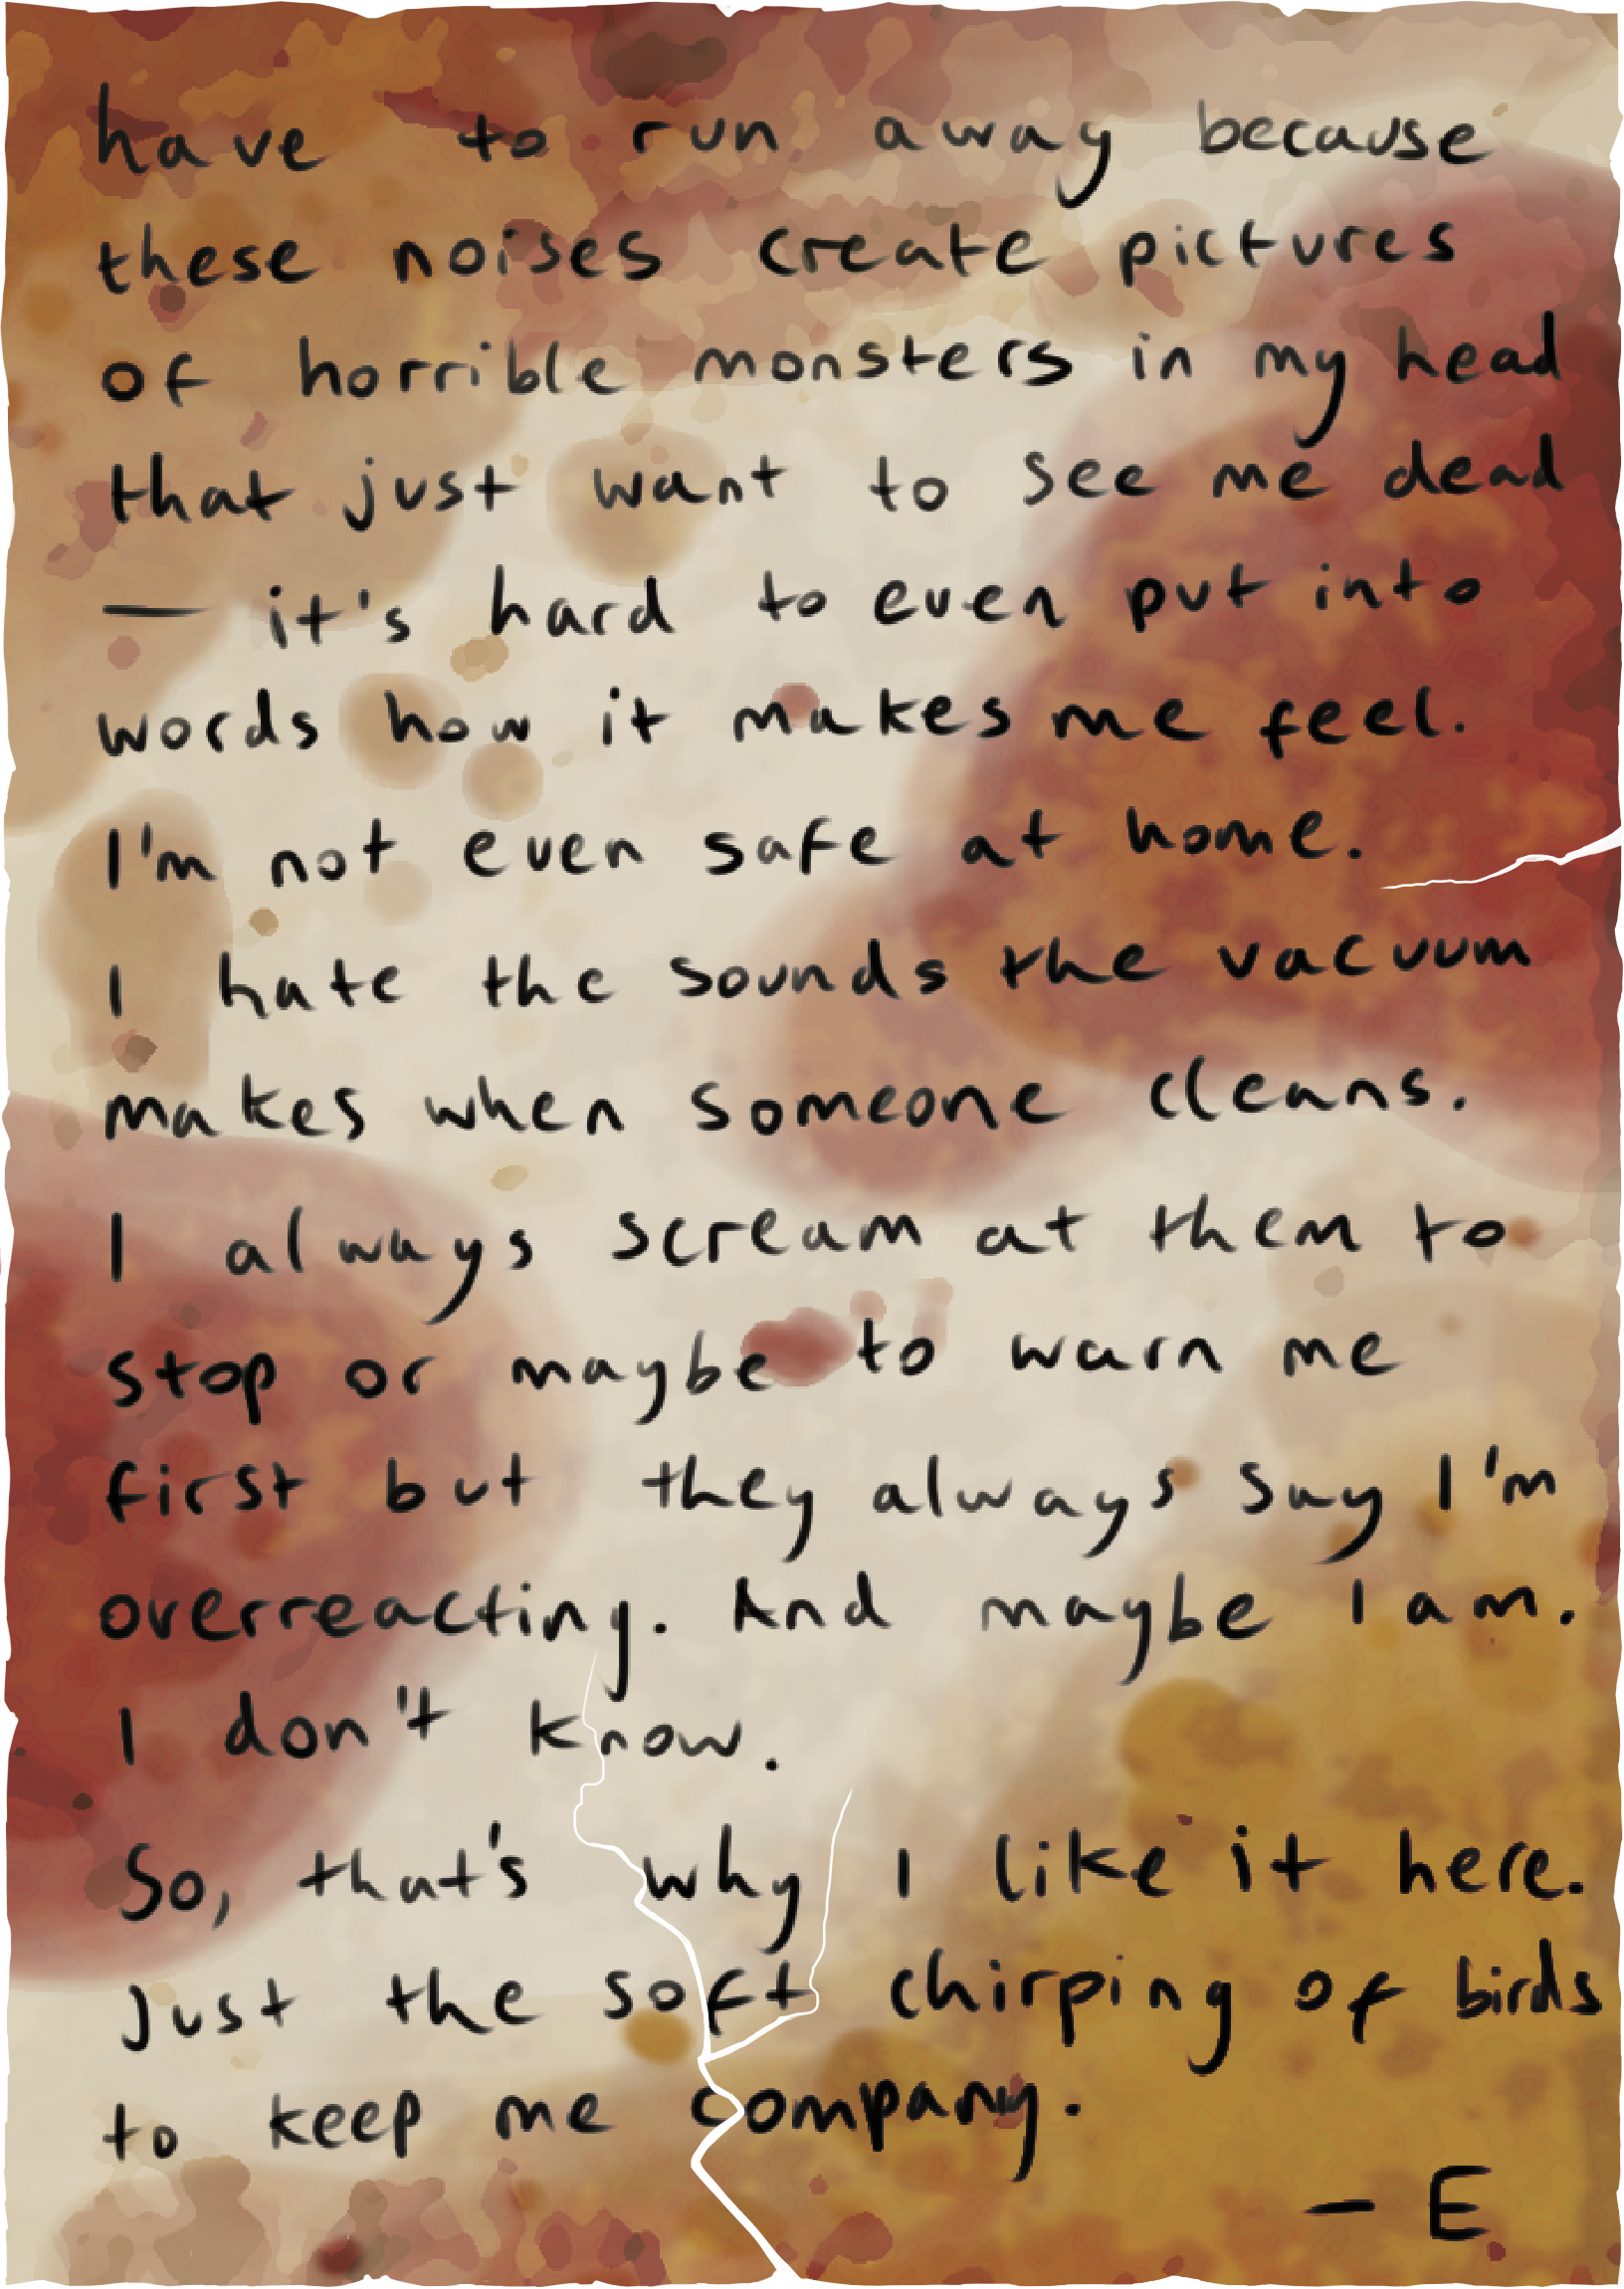 have to run away because
these noises create pictures
of horrible monsters in my head
that just want to see me dead
— it's hard to even put into
words how it makes me feel.
I'm not even safe at home.
I hate the sounds the vacuum
makes when someone cleans.
I always scream at them to
stop or maybe to warn me
first but they always say I'm
overreacting. And maybe I am.
I don't know.
So, that's why I like it here.
Just the soft chirping of birds
to keep me company.
— E